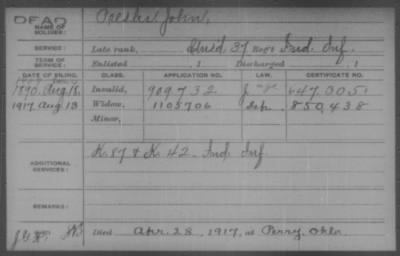 DEAD
NAME OF SOLDIER: John,
SERVICE: Late rank, 37 Reg't Ind. Inf.
TERM OF SERVICE: Enlisted , 1 Discharged , 1
DATE OF FILING. CLASS. APPLICATION NO. LAW. CERTIFICATE NO.
1890, Aug 18, Invalid, 909732 647005
1917, Aug 13 Widow, 1105706 850438
Minor,
ADDITIONAL SERVICES: K. 87 & K. 42. Ind. Inf
REMARKS:
Died Apr. 28, 1917, at Perry, Okla.